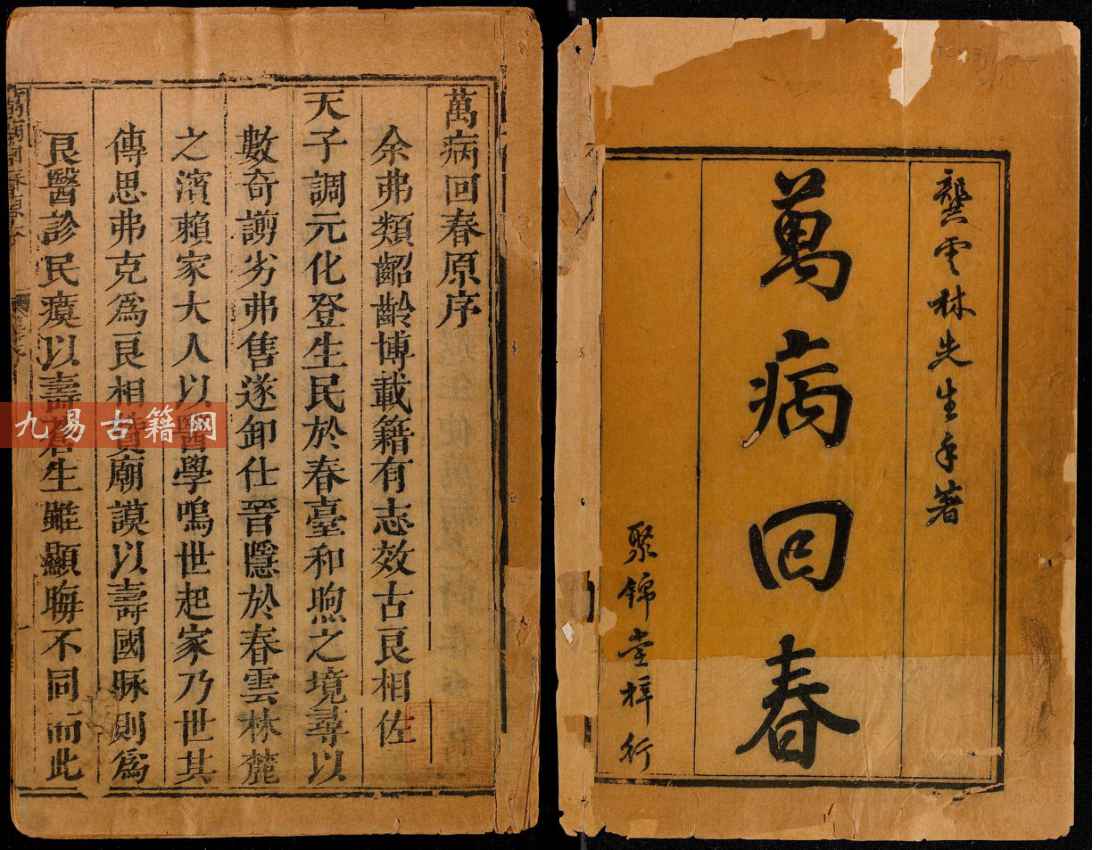 龔雲林先生手著
萬病回春
聚錦堂梓行
萬病回春原序
余弗類齠齡博載籍有志效古良相佐
天子調元化登生民於春臺和煦之境尋以
數奇謭劣弗售遂卸仕晉隱於春雲林麓
之濱賴家大人以醫學鳴世起家乃世其
傳思弗克爲良相廟謨以壽國脉則爲
良醫診民瘼以壽生雖顯晦不同而此
九易古籍网